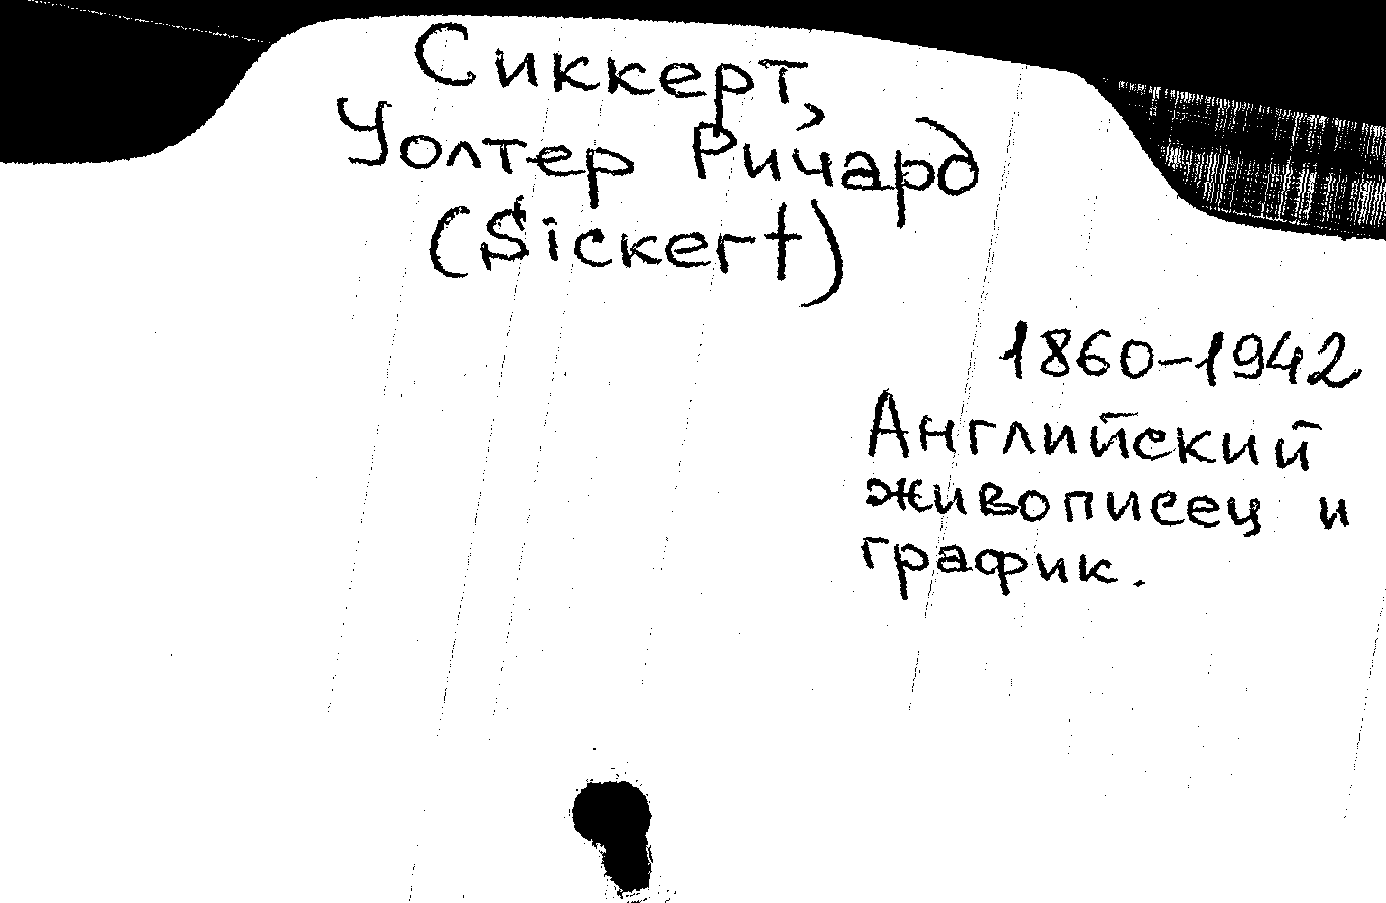 Сиккерт,
Уолтер Ричард
(Sickert)
1860-1942
Английский
живописец и
график.